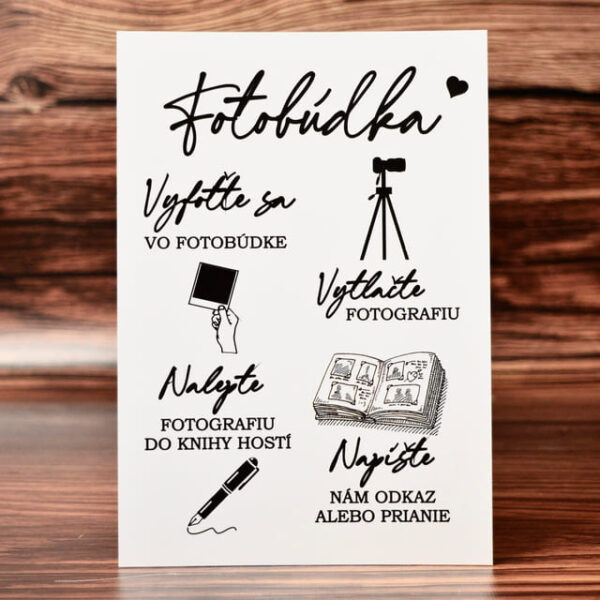 Fotobúdka
Vyfoťte sa
VO FOTOBÚDKE
Vytlačte
FOTOGRAFIU
Nalepte
FOTOGRAFIU
DO KNIHY HOSTÍ
Napíšte
NÁM ODKAZ
ALEBO PRIANIE